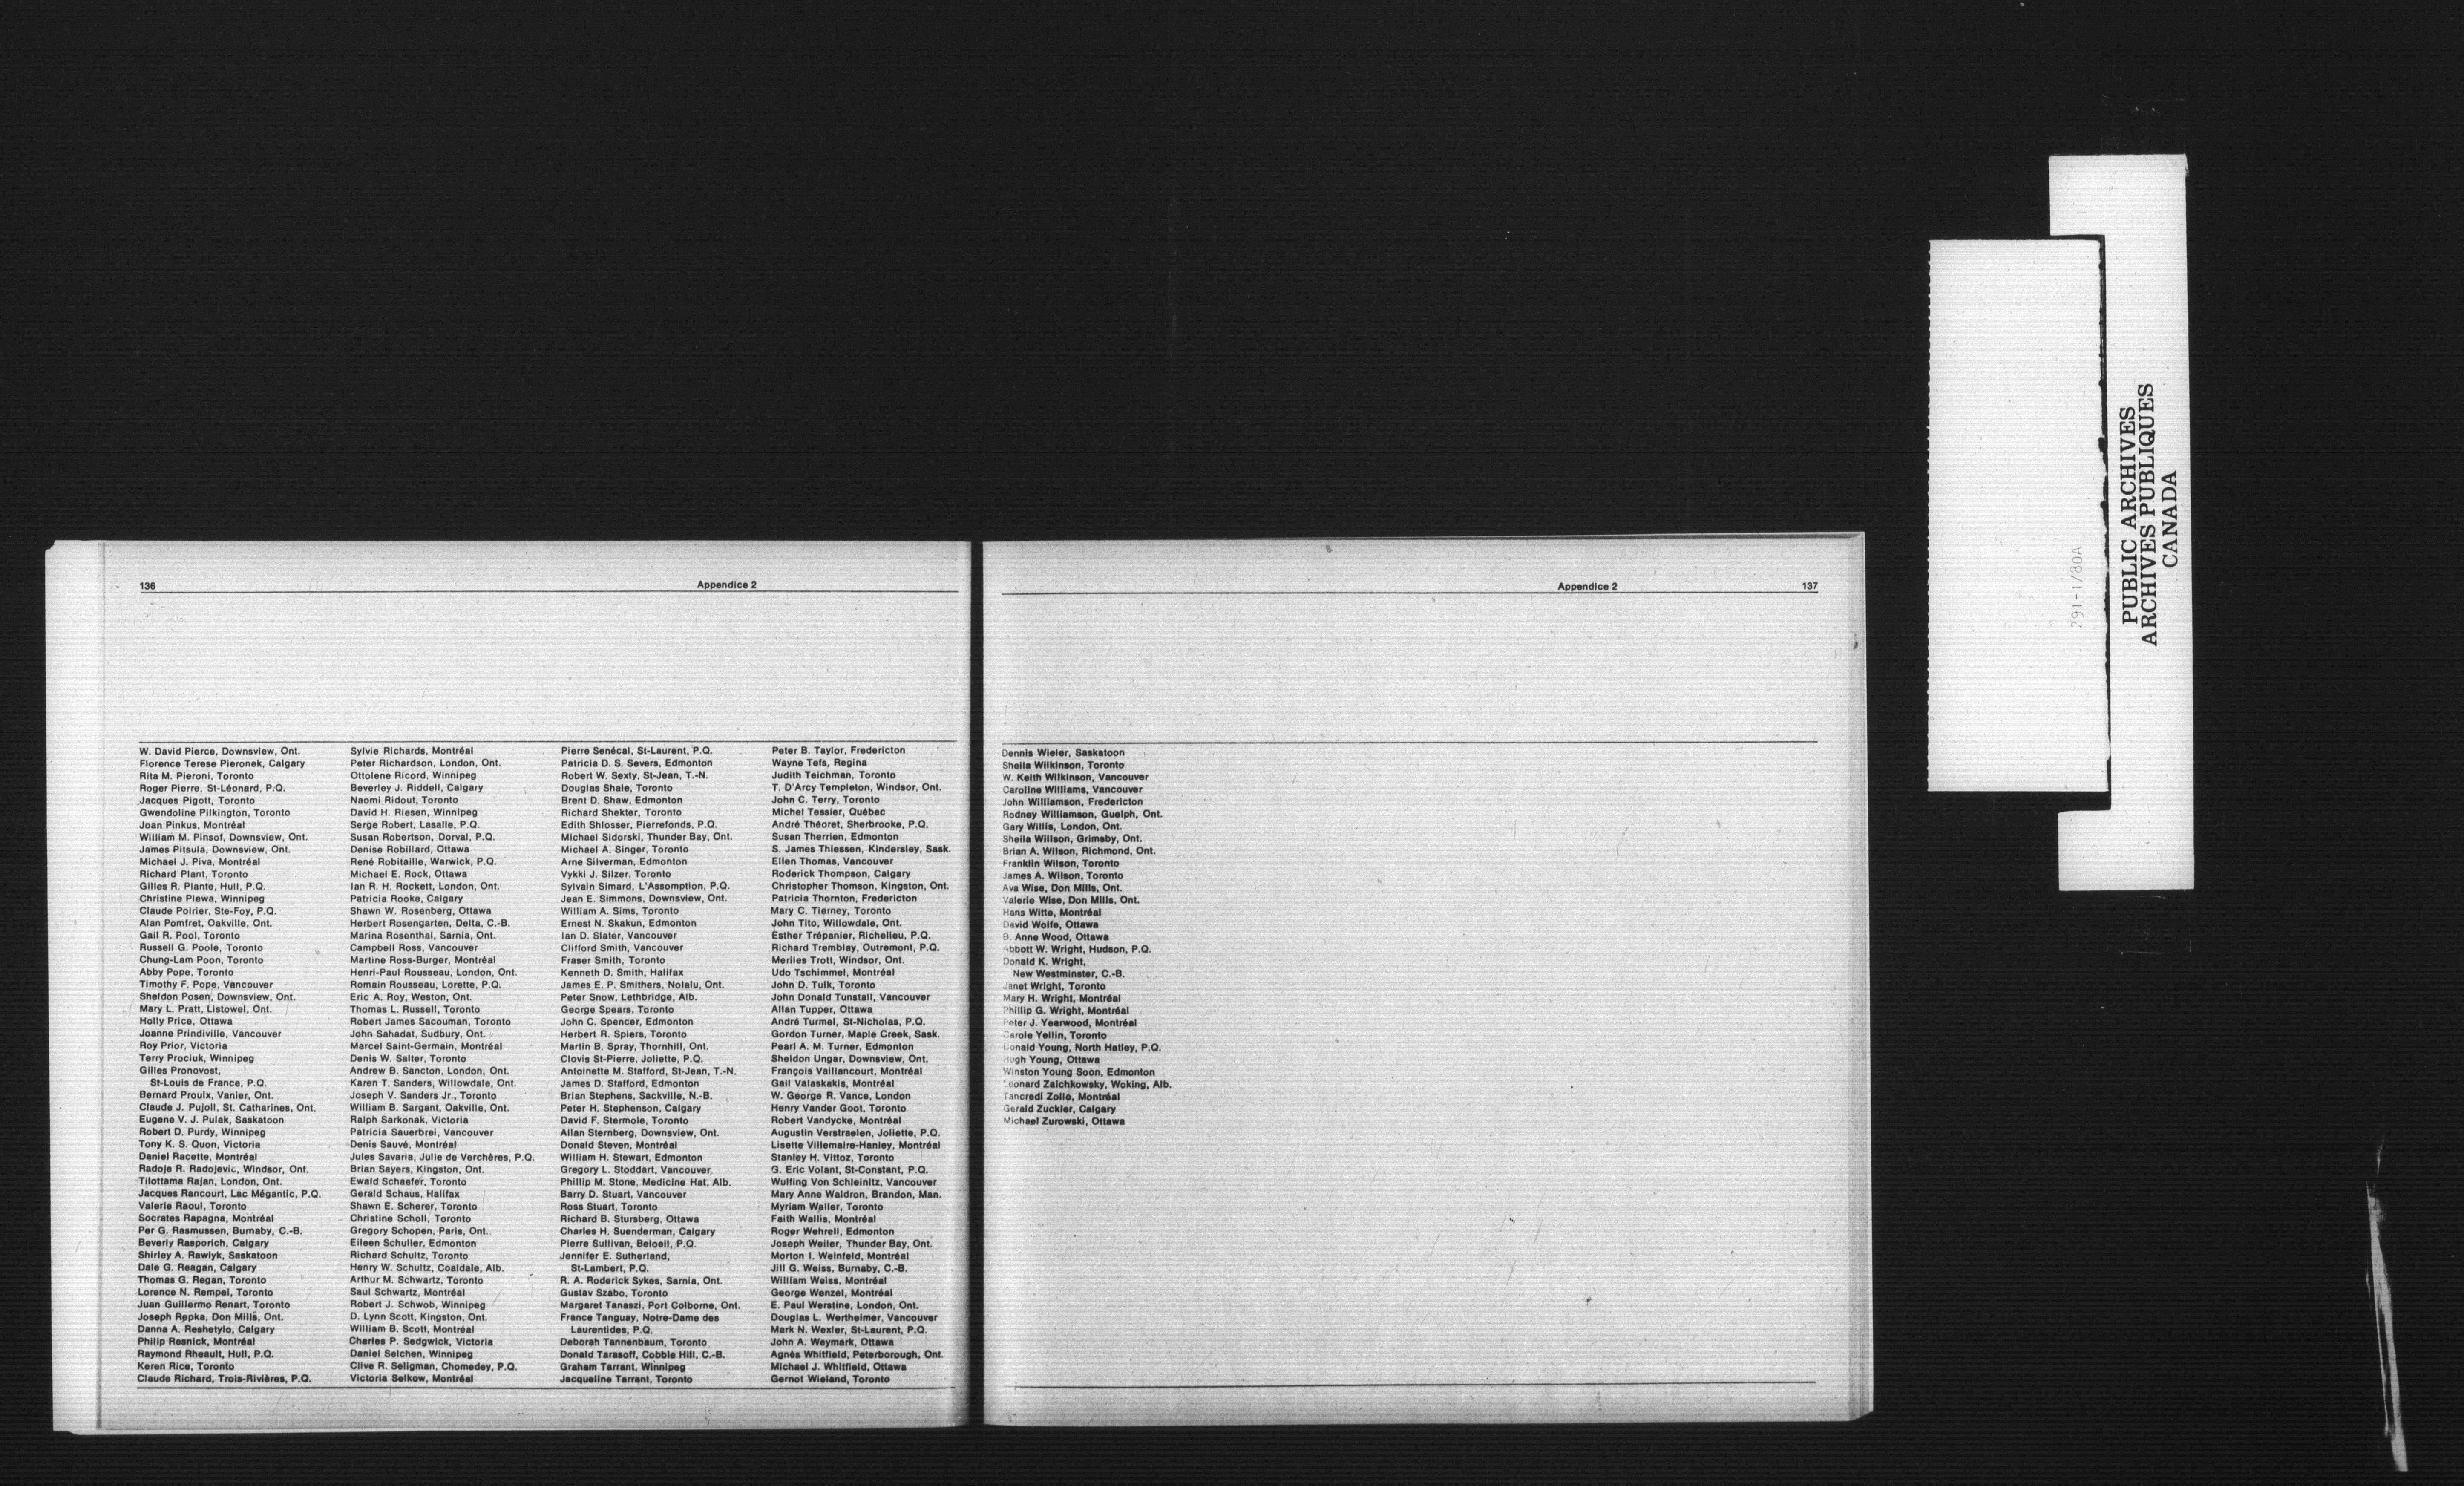 136
Appendice 2
W. David Pierce, Downsview, Ont.
Florence Terese Pieronek, Calgary
Rita M. Pieroni, Toronto
Roger Pierre, St-Léonard, P.Q.
Jacques Pigott, Toronto
Gwendoline Pilkington, Toronto
Joan Pinkus, Montréal
William M. Pinsof, Downsview, Ont.
James Pitsula, Downsview, Ont.
Michael J. Piva, Montréal
Richard Plant, Toronto
Gilles R. Plante, Hull, P.Q.
Christine Plewa, Winnipeg
Claude Poirier, Ste-Foy, P.Q.
Alan Pomfret, Oakville, Ont.
Gail R. Pool, Toronto
Russell G. Poole, Toronto
Chung-Lam Poon, Toronto
Abby Pope, Toronto
Timothy F. Pope, Vancouver
Sheldon Posen, Downsview, Ont.
Mary L. Pratt, Listowel, Ont.
Holly Price, Ottawa
Joanne Prindiville, Vancouver
Roy Prior, Victoria
Terry Prociuk, Winnipeg
Gilles Pronovost,
St-Louis de France, P.Q.
Bernard Proulx, Vanier, Ont.
Claude J. Pujoll, St. Catharines, Ont.
Eugene V. J. Pulak, Saskatoon
Robert D. Purdy, Winnipeg
Tony K. S. Quon, Victoria
Daniel Racette, Montréal
Radoje R. Radojevic, Windsor, Ont.
Tilottama Rajan, London, Ont.
Jacques Rancourt, Lac Mégantic, P.Q.
Valerie Raoul, Toronto
Socrates Rapagna, Montréal
Per G. Rasmussen, Burnaby, C.-B.
Beverly Rasporich, Calgary
Shirley A. Rawlyk, Saskatoon
Dale G. Reagan, Calgary
Thomas G. Regan, Toronto
Lorence N. Rempel, Toronto
Juan Guillermo Renart, Toronto
Joseph Repka, Don Mills, Ont.
Danna A. Reshetylo, Calgary
Philip Resnick, Montréal
Raymond Rheault, Hull, P.Q.
Keren Rice, Toronto
Claude Richard, Trois-Rivières, P.Q.
Sylvie Richards, Montréal
Peter Richardson, London, Ont.
Ottolene Ricord, Winnipeg
Beverley J. Riddell, Calgary
Naomi Ridout, Toronto
David H. Riesen, Winnipeg
Serge Robert, Lasalle, P.Q.
Susan Robertson, Dorval, P.Q.
Denise Robillard, Ottawa
René Robitaille, Warwick, P.Q.
Michael E. Rock, Ottawa
Ian R. H. Rockett, London, Ont.
Patricia Rooke, Calgary
Shawn W. Rosenberg, Ottawa
Herbert Rosengarten, Delta, C.-B.
Marina Rosenthal, Sarnia, Ont.
Campbell Ross, Vancouver
Martine Ross-Burger, Montréal
Henri-Paul Rousseau, London, Ont.
Romain Rousseau, Lorette, P.Q.
Eric A. Roy, Weston, Ont.
Thomas L. Russell, Toronto
Robert James Sacouman, Toronto
John Sahadat, Sudbury, Ont.
Marcel Saint-Germain, Montréal
Denis W. Salter, Toronto
Andrew B. Sancton, London, Ont.
Karen T. Sanders, Willowdale, Ont.
Joseph V. Sanders Jr., Toronto
William B. Sargant, Oakville, Ont.
Ralph Sarkonak, Victoria
Patricia Sauerbrei, Vancouver
Denis Sauvé, Montréal
Jules Savaria, Julie de Verchères, P.Q.
Brian Sayers, Kingston, Ont.
Ewald Schaefer, Toronto
Gerald Schaus, Halifax
Shawn E. Scherer, Toronto
Christine Scholl, Toronto
Gregory Schopen, Paris, Ont.
Eileen Schuller, Edmonton
Richard Schultz, Toronto
Henry W. Schultz, Coaldale, Alb.
Arthur M. Schwartz, Toronto
Saul Schwartz, Montréal
Robert J. Schwob, Winnipeg
D. Lynn Scott, Kingston, Ont.
William B. Scott, Montréal
Charles P. Sedgwick, Victoria
Daniel Selchen, Winnipeg
Clive R. Seligman, Chomedey, P.Q.
Victoria Selkow, Montréal
Pierre Senécal, St-Laurent, P.Q.
Patricia D. S. Severs, Edmonton
Robert W. Sexty, St-Jean, T.-N.
Douglas Shale, Toronto
Brent D. Shaw, Edmonton
Richard Shekter, Toronto
Edith Shlosser, Pierrefonds, P.Q.
Michael Sidorski, Thunder Bay, Ont.
Michael A. Singer, Toronto
Arne Silverman, Edmonton
Vykki J. Silzer, Toronto
Sylvain Simard, L'Assomption, P.Q.
Jean E. Simmons, Downsview, Ont.
William A. Sims, Toronto
Ernest N. Skakun, Edmonton
Ian D. Slater, Vancouver
Clifford Smith, Vancouver
Fraser Smith, Toronto
Kenneth D. Smith, Halifax
James E. P. Smithers, Nolalu, Ont.
Peter Snow, Lethbridge, Alb.
George Spears, Toronto
John C. Spencer, Edmonton
Herbert R. Spiers, Toronto
Martin B. Spray, Thornhill, Ont.
Clovis St-Pierre, Joliette, P.Q.
Antoinette M. Stafford, St-Jean, T.-N.
James D. Stafford, Edmonton
Brian Stephens, Sackville, N.-B.
Peter H. Stephenson, Calgary
David F. Stermole, Toronto
Allan Sternberg, Downsview, Ont.
Donald Steven, Montréal
William H. Stewart, Edmonton
Gregory L. Stoddart, Vancouver
Phillip M. Stone, Medicine Hat, Alb.
Barry D. Stuart, Vancouver
Ross Stuart, Toronto
Richard B. Stursberg, Ottawa
Charles H. Suenderman, Calgary
Pierre Sullivan, Beloeil, P.Q.
Jennifer E. Sutherland,
St-Lambert, P.Q.
R. A. Roderick Sykes, Sarnia, Ont.
Gustav Szabo, Toronto
Margaret Tanaszi, Port Colborne, Ont.
France Tanguay, Notre-Dame des
Laurentides, P.Q.
Deborah Tannenbaum, Toronto
Donald Tarasoff, Cobble Hill, C.-B.
Graham Tarrant, Winnipeg
Jacqueline Tarrant, Toronto
Peter B. Taylor, Fredericton
Wayne Tefs, Regina
Judith Teichman, Toronto
T. D'Arcy Templeton, Windsor, Ont.
John C. Terry, Toronto
Michel Tessier, Québec
André Théoret, Sherbrooke, P.Q.
Susan Therrien, Edmonton
S. James Thiessen, Kindersley, Sask.
Ellen Thomas, Vancouver
Roderick Thompson, Calgary
Christopher Thomson, Kingston, Ont.
Patricia Thornton, Fredericton
Mary C. Tierney, Toronto
John Tito, Willowdale, Ont.
Esther Trépanier, Richelieu, P.Q.
Richard Tremblay, Outremont, P.Q.
Meriles Trott, Windsor, Ont.
Udo Tschimmel, Montréal
John D. Tulk, Toronto
John Donald Tunstall, Vancouver
Allan Tupper, Ottawa
André Turmel, St-Nicholas, P.Q.
Gordon Turner, Maple Creek, Sask.
Pearl A. M. Turner, Edmonton
Sheldon Ungar, Downsview, Ont.
François Vaillancourt, Montréal
Gail Valaskakis, Montréal
W. George R. Vance, London
Henry Vander Goot, Toronto
Robert Vandycke, Montréal
Augustin Verstraelen, Joliette, P.Q.
Lisette Villemaire-Hanley, Montréal
Stanley H. Vittoz, Toronto
G. Eric Volant, St-Constant, P.Q.
Wulfing Von Schleinitz, Vancouver
Mary Anne Waldron, Brandon, Man.
Myriam Waller, Toronto
Faith Wallis, Montréal
Roger Wehrell, Edmonton
Joseph Weiler, Thunder Bay, Ont.
Morton I. Weinfeld, Montréal
Jill G. Weiss, Burnaby, C.-B.
William Weiss, Montréal
George Wenzel, Montréal
E. Paul Werstine, London, Ont.
Douglas L. Wertheimer, Vancouver
Mark N. Wexler, St-Laurent, P.Q.
John A. Weymark, Ottawa
Agnès Whitfield, Peterborough, Ont.
Michael J. Whitfield, Ottawa
Gernot Wieland, Toronto
Appendice 2
137
Dennis Wieler, Saskatoon
Sheila Wilkinson, Toronto
W. Keith Wilkinson, Vancouver
Caroline Williams, Vancouver
John Williamson, Fredericton
Rodney Williamson, Guelph, Ont.
Gary Willis, London, Ont.
Sheila Willson, Grimsby, Ont.
Brian A. Wilson, Richmond, Ont.
Franklin Wilson, Toronto
James A. Wilson, Toronto
Ava Wise, Don Mills, Ont.
Valerie Wise, Don Mills, Ont.
Hans Witte, Montréal
David Wolfe, Ottawa
B. Anne Wood, Ottawa
Abbott W. Wright, Hudson, P.Q.
Donald K. Wright,
New Westminster, C.-B.
Janet Wright, Toronto
Mary H. Wright, Montréal
Phillip G. Wright, Montréal
Peter J. Yearwood, Montréal
Carole Yellin, Toronto
Donald Young, North Hatley, P.Q.
Hugh Young, Ottawa
Winston Young Soon, Edmonton
Leonard Zaichkowsky, Woking, Alb.
Tancredi Zollo, Montréal
Gerald Zuckier, Calgary
Michael Zurowski, Ottawa
291-1/80A
PUBLIC ARCHIVES
ARCHIVES PUBLIQUES
CANADA